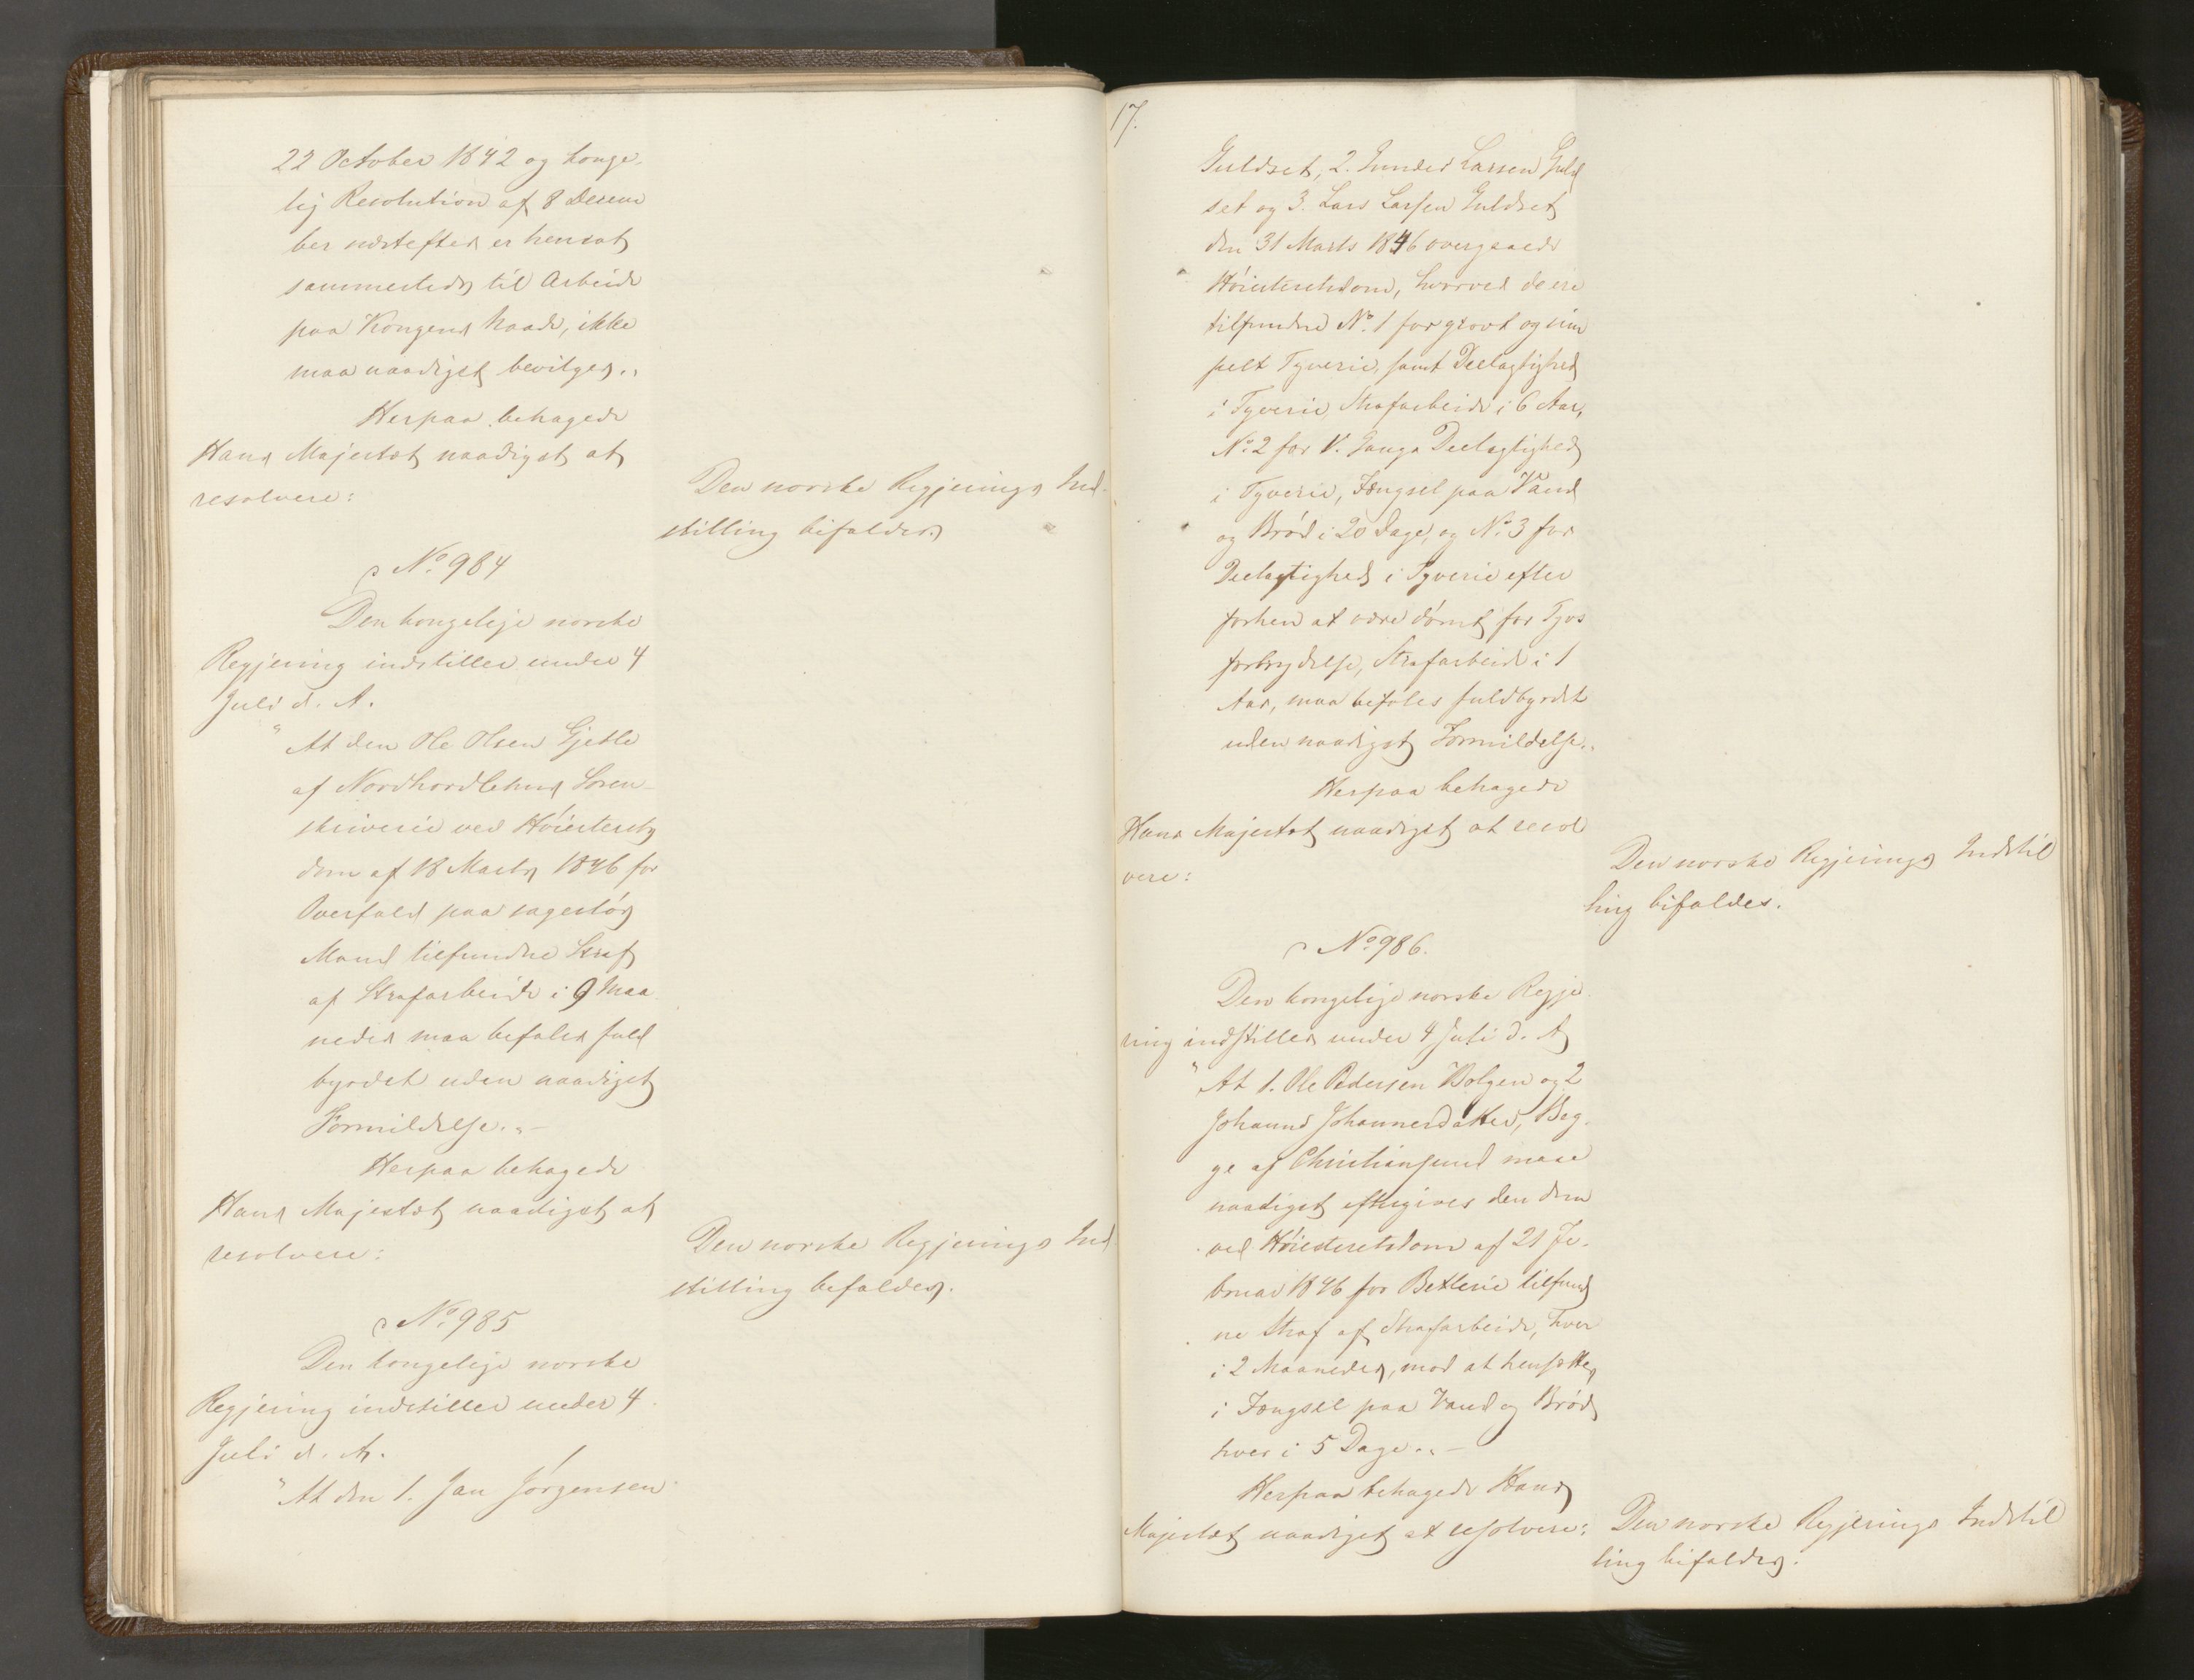 22 October 1842 og konge-
lig Resolution af 8 Decem
ber næstefter er hensat
sammesteds til Arbeide
paa Kongens Naade, ikke
maa naadigst bevilges.„
Herpaa behagede
Hans Majestæt naadigst at
resolvere:
Den norske Regjerings Ind-
stilling bifaldes.
No. 984
Den kongelige norske
Regjering indstiller under 4
Juli d. A.
"At den Ole Olsen Gjetle
af Nordhordlehns Soren-
skriverie ved Høiesterets
dom af 18 Marts 1846 for
Overfald paa sagesløs
Mand tilfundne Straf
af Strafarbeide i 9 Maa
neder maa befales fuld
byrdet uden naadigst
Formildelse.„ -
Herpaa behagede
Hans Majestæt naadigst at
resolvere:
Den norske Regjerings Ind
stilling bifaldes.
No. 985
Den kongelige norske
Regjering indstiller under 4
Juli d. A.
"At den 1. Jan Jørgensen
17.
Guldset, 2. Gunder Larsen Guld
set og 3. Lars Larsen Guldset
den 31 Marts 1846 overgaaede
Høiesteretsdom, hvorved de ere
tilfundne No. 1 for grovt og sim
pelt Tyverie, samt Deelagtighed
i Tyverie, Strafarbeide i 6 Aar,
No. 2 for 1. Gangs Deelagtighed
i Tyverie, Fængsel paa Vand
og Brød i 20 Dage, og No. 3 for
Deelagtighed i Tyverie efter
forhen at være dømt for Tyvs
forbrydelse, Strafarbeide i 1
Aar, maa befales fuldbyrdet
uden naadigst Formildelse.„
Herpaa behagede
Hans Majestæt naadigst at resol
vere:
Den norske Regjerings Indstil
ling bifaldes.
No. 986.
Den kongelige norske Regje
ring indstiller under 4 Juli d. A
"At 1. Ole Pedersen Bolgen og 2
Johanne Johannesdatter, Beg-
ge af Christiansund maae
naadigst eftergives den dem
ved Høiesteretsdom af 21 Fe-
bruar 1846 for Betlerie tilfund
ne Straf af Strafarbeide, hver
i 2 Maaneder, mod at hensættes
i Fængsel paa Vand og Brød
hver i 5 Dage.„ -
Herpaa behagede Hans
Majestæt naadigst at resolvere:
Den norske Regjerings Indstil
ling bifaldes.